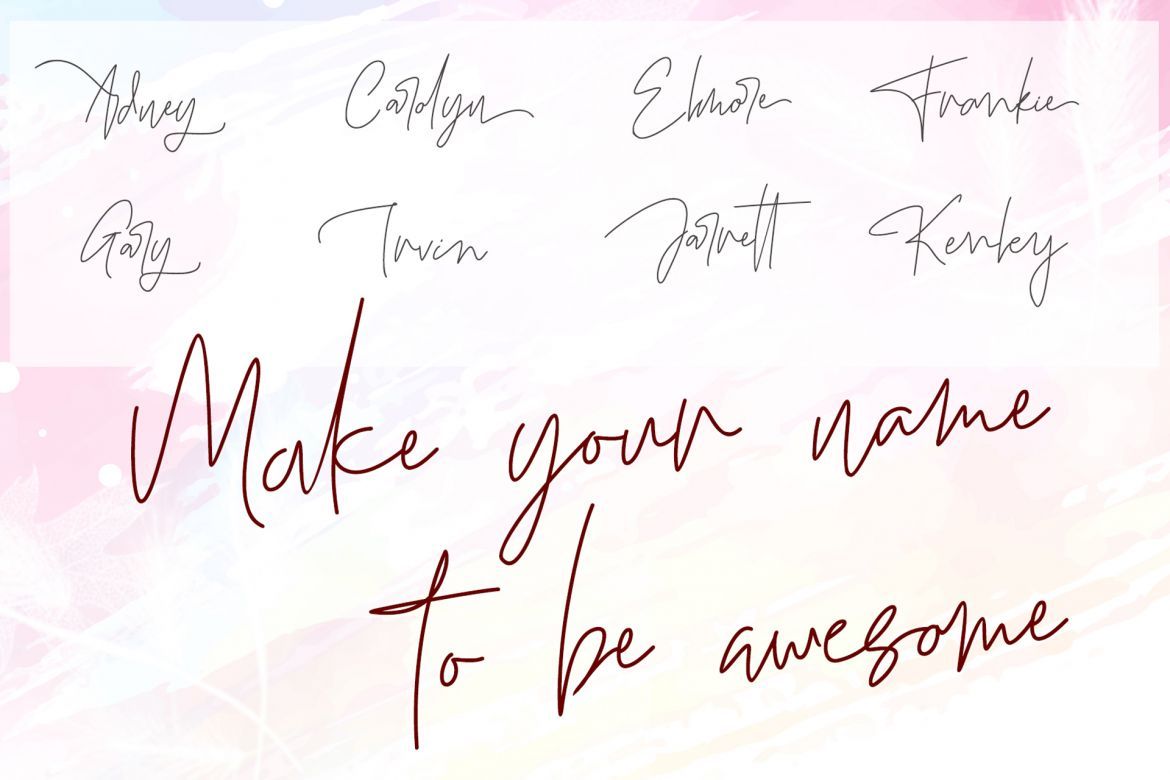 Adney Carolyn Elmore Frankie
Gary Irvin Jarrett Kenley
Make your name
to be awesome